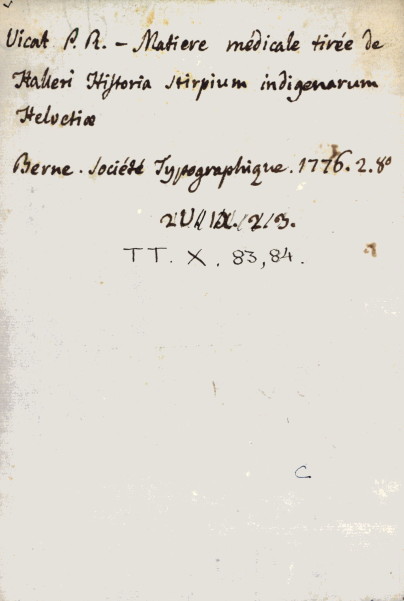 Vicat P. R. - Matiere médicale tirée de
Halleri Historia Stirpium indigenarum
Helvetiæ
Berne. Société Typographique. 1776. 2. 8º
2. 3.
TT. X. 83, 84.
C